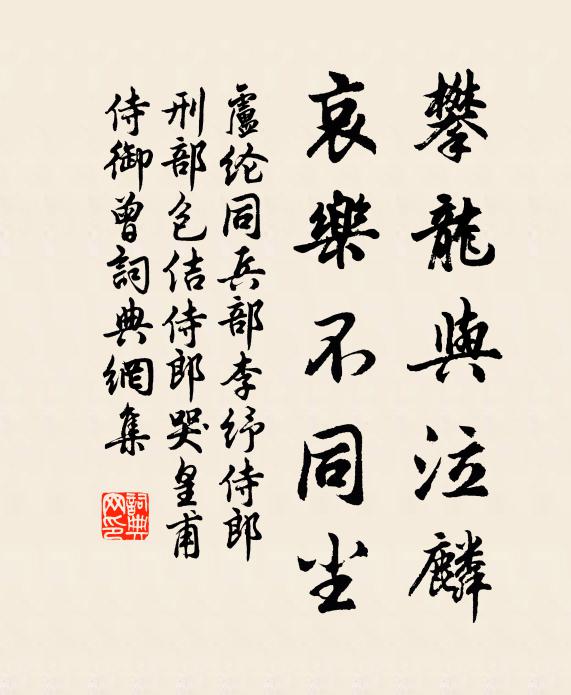 攀龍與泣麟
哀樂不同塵
盧綸同兵部李紓侍郎
刑部包佶侍郎哭皇甫
侍御曾詞典網集
詞典网印